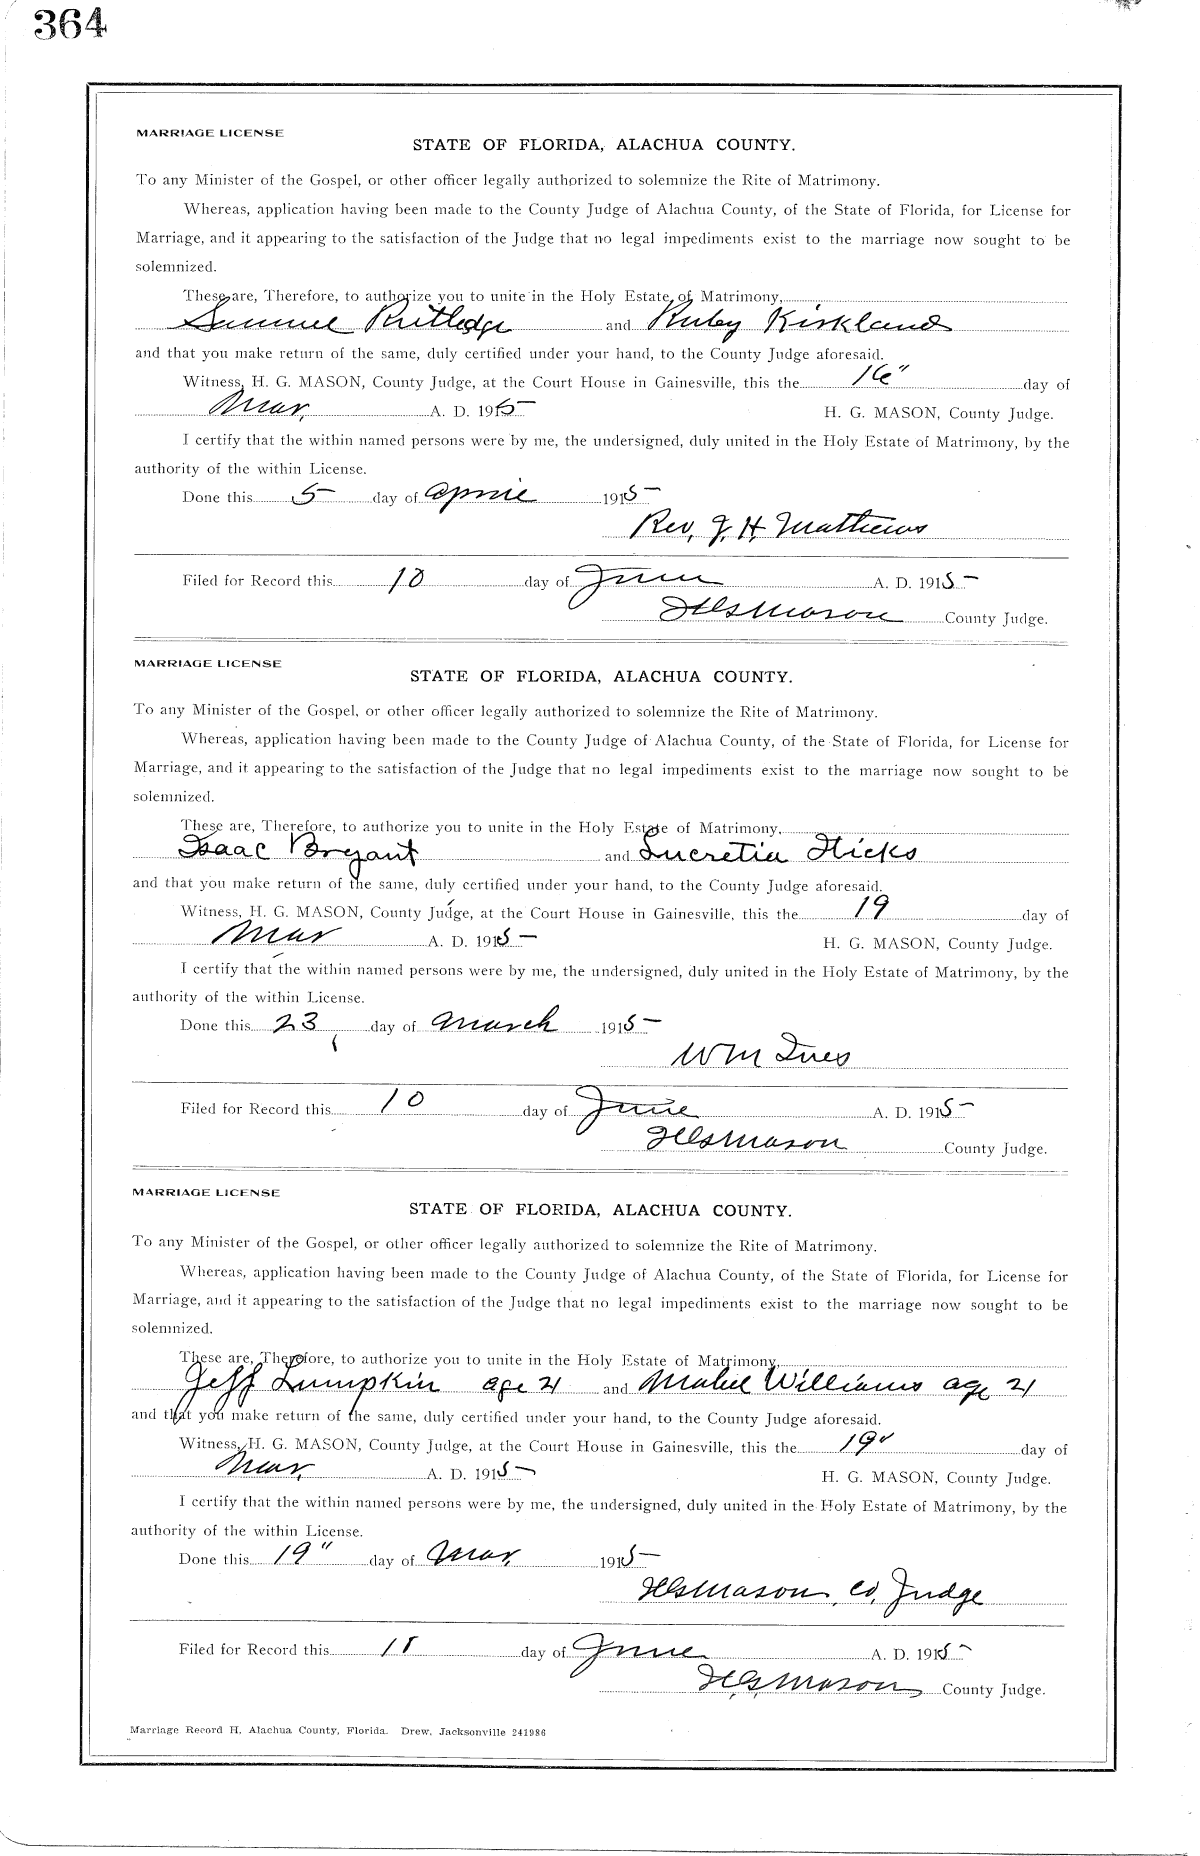 364
MARRIAGE LICENSE
STATE OF FLORIDA, ALACHUA COUNTY.
To any Minister of the Gospel, or other officer legally authorized to solemnize the Rite of Matrimony.
Whereas, application having been made to the County Judge of Alachua County, of the State of Florida, for License for
Marriage, and it appearing to the satisfaction of the Judge that no legal impediments exist to the marriage now sought to be
solemnized.
These are, Therefore, to authorize you to unite in the Holy Estate of Matrimony,
Samuel Rutledge and Ruby Kirkland
and that you make return of the same, duly certified under your hand, to the County Judge aforesaid.
Witness, H. G. MASON, County Judge, at the Court House in Gainesville, this the 16" day of
Mar, A. D. 1915 H. G. MASON, County Judge.
I certify that the within named persons were by me, the undersigned, duly united in the Holy Estate of Matrimony, by the
authority of the within License.
Done this 5 day of April 1915
Rev, J. H. Mathews
Filed for Record this 10 day of June A. D. 1915
H G Mason County Judge.
MARRIAGE LICENSE
STATE OF FLORIDA, ALACHUA COUNTY.
To any Minister of the Gospel, or other officer legally authorized to solemnize the Rite of Matrimony.
Whereas, application having been made to the County Judge of Alachua County, of the State of Florida, for License for
Marriage, and it appearing to the satisfaction of the Judge that no legal impediments exist to the marriage now sought to be
solemnized.
These are, Therefore, to authorize you to unite in the Holy Estate of Matrimony,
Isaac Bryant and Lucretia Hicks
and that you make return of the same, duly certified under your hand, to the County Judge aforesaid.
Witness, H. G. MASON, County Judge, at the Court House in Gainesville, this the 19 day of
Mar A. D. 1915 H. G. MASON, County Judge.
I certify that the within named persons were by me, the undersigned, duly united in the Holy Estate of Matrimony, by the
authority of the within License.
Done this 23 day of March 1915
Wm Ives
Filed for Record this 10 day of June A. D. 1915
H G Mason County Judge.
MARRIAGE LICENSE
STATE OF FLORIDA, ALACHUA COUNTY.
To any Minister of the Gospel, or other officer legally authorized to solemnize the Rite of Matrimony.
Whereas, application having been made to the County Judge of Alachua County, of the State of Florida, for License for
Marriage, and it appearing to the satisfaction of the Judge that no legal impediments exist to the marriage now sought to be
solemnized.
These are, Therefore, to authorize you to unite in the Holy Estate of Matrimony,
Jeff Lumpkin age 21 and Mabel Williams age 21
and that you make return of the same, duly certified under your hand, to the County Judge aforesaid.
Witness, H. G. MASON, County Judge, at the Court House in Gainesville, this the 19" day of
Mar, A. D. 1915 H. G. MASON, County Judge.
I certify that the within named persons were by me, the undersigned, duly united in the Holy Estate of Matrimony, by the
authority of the within License.
Done this 19" day of Mar, 1915
H G Mason, Co, Judge
Filed for Record this 11 day of June A. D. 1915
H, G, Mason County Judge.
Marriage Record H, Alachua County, Florida. Drew, Jacksonville 241986